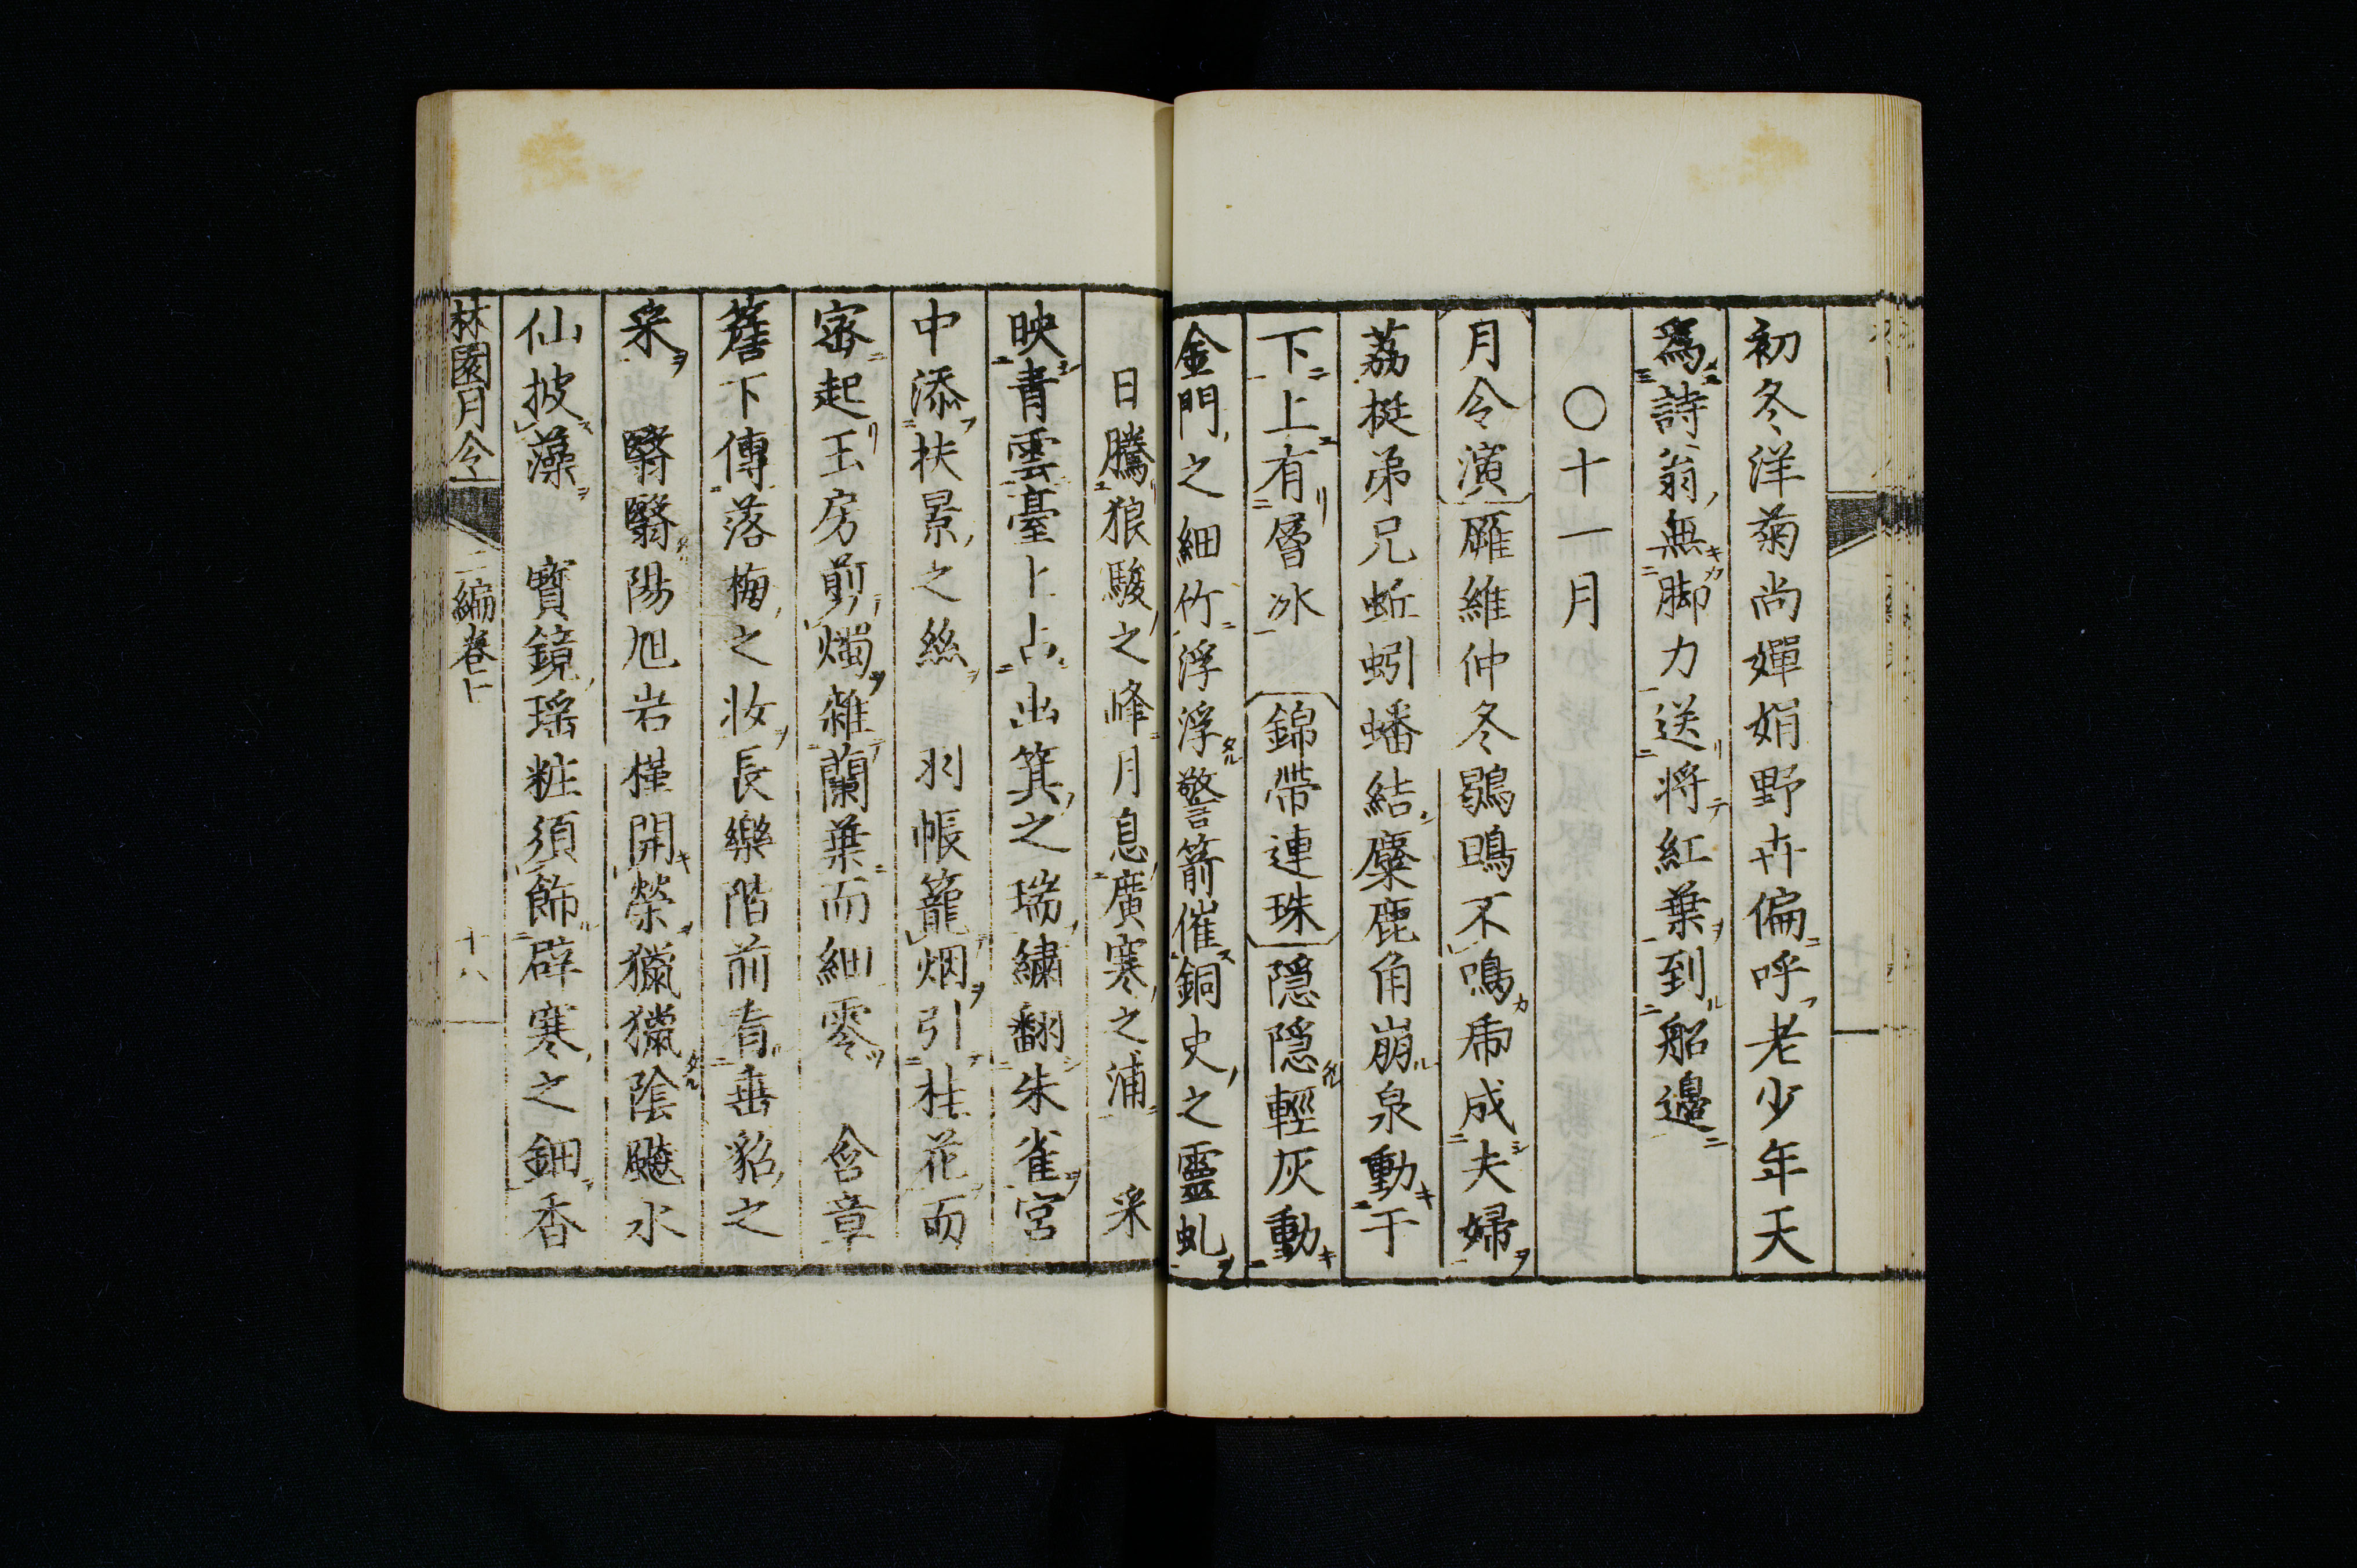 初冬洋菊尚嬋娟野卉偏呼老少年天
為詩翁無脚力送将紅葉到船邊
〇十一月
月令演 雁維仲冬鶡鴠不鳴乕成夫婦
荔挺弟兄蚯蚓蟠結麋鹿角崩泉動于
下上有層冰 錦帶連珠 隠隠輕灰動
金門之細竹浮浮警箭催銅史之靈虬
日騰狼駿之峰月息廣寒之浦 采
映青雲臺上占出箕之瑞繍翻朱雀宮
中添扶景之絲 羽帳籠烟引桂花而
密起玉房剪燭雜蘭葉而細零 含章
簷下傳落梅之妝長樂階前看垂貂之
采 翳翳陽旭岩槿開榮獵獵陰飇水
仙披藻 寳鏡瑶粧須飾辟寒之鈿香
林園月令
二編卷七
十八